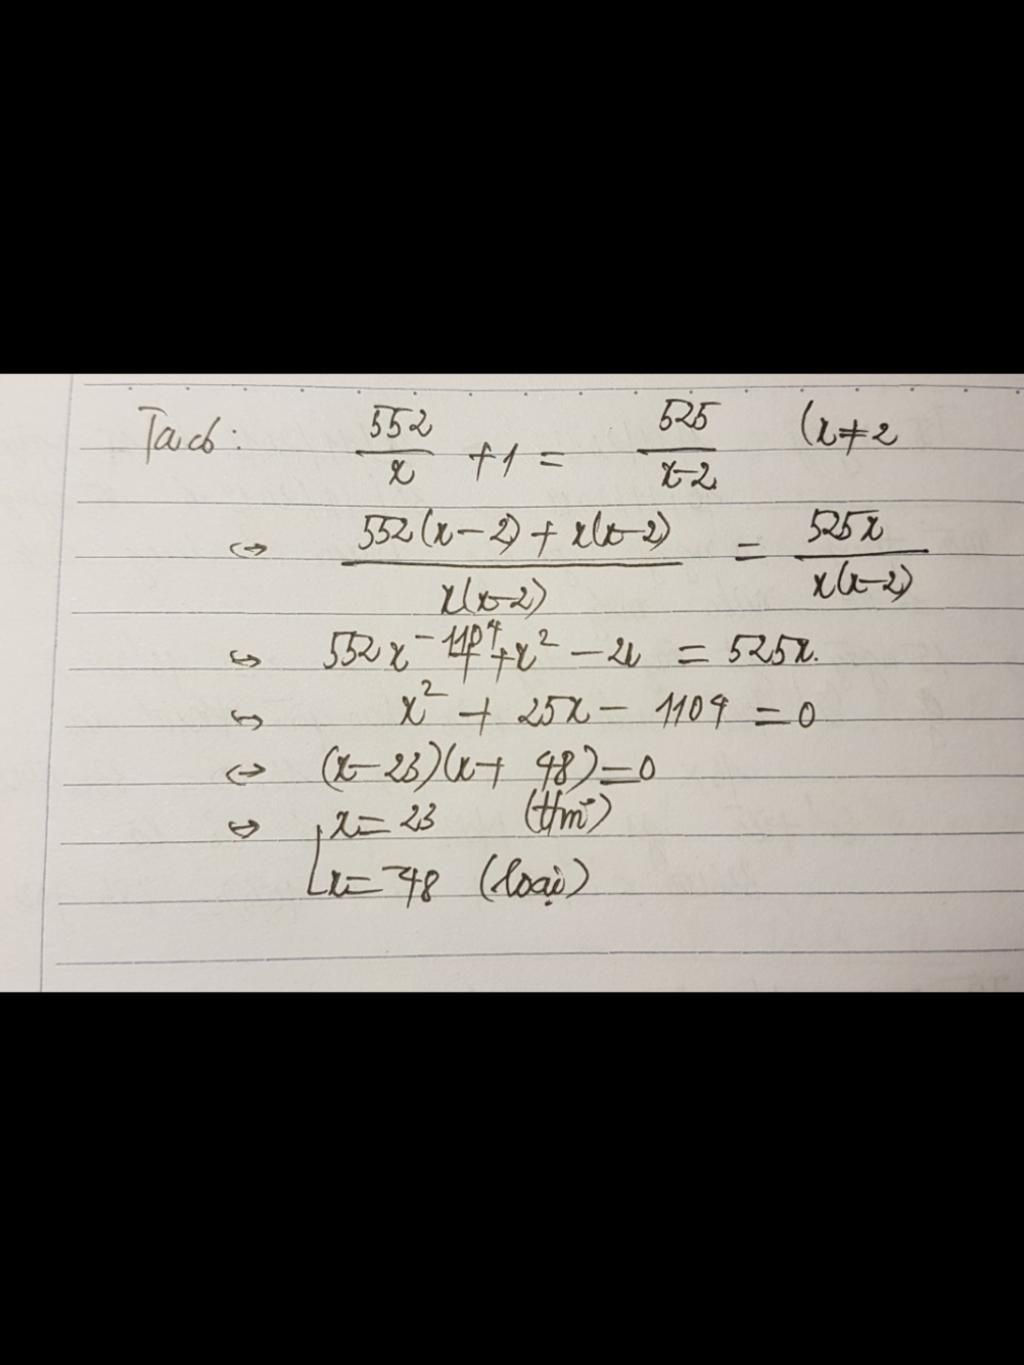 Ta có: 552/x + 1 = 525/x-2 (x≠2
⇔ 552(x-2) + x(x-2)/x(x-2) = 525x/x(x-2)
⇔ 552x - 1104 + x² - 2x = 525x.
⇔ x² + 25x - 1104 = 0
⇔ (x-23)(x+48)=0
⇔ [x=23 (t/m)
x=-48 (loại)